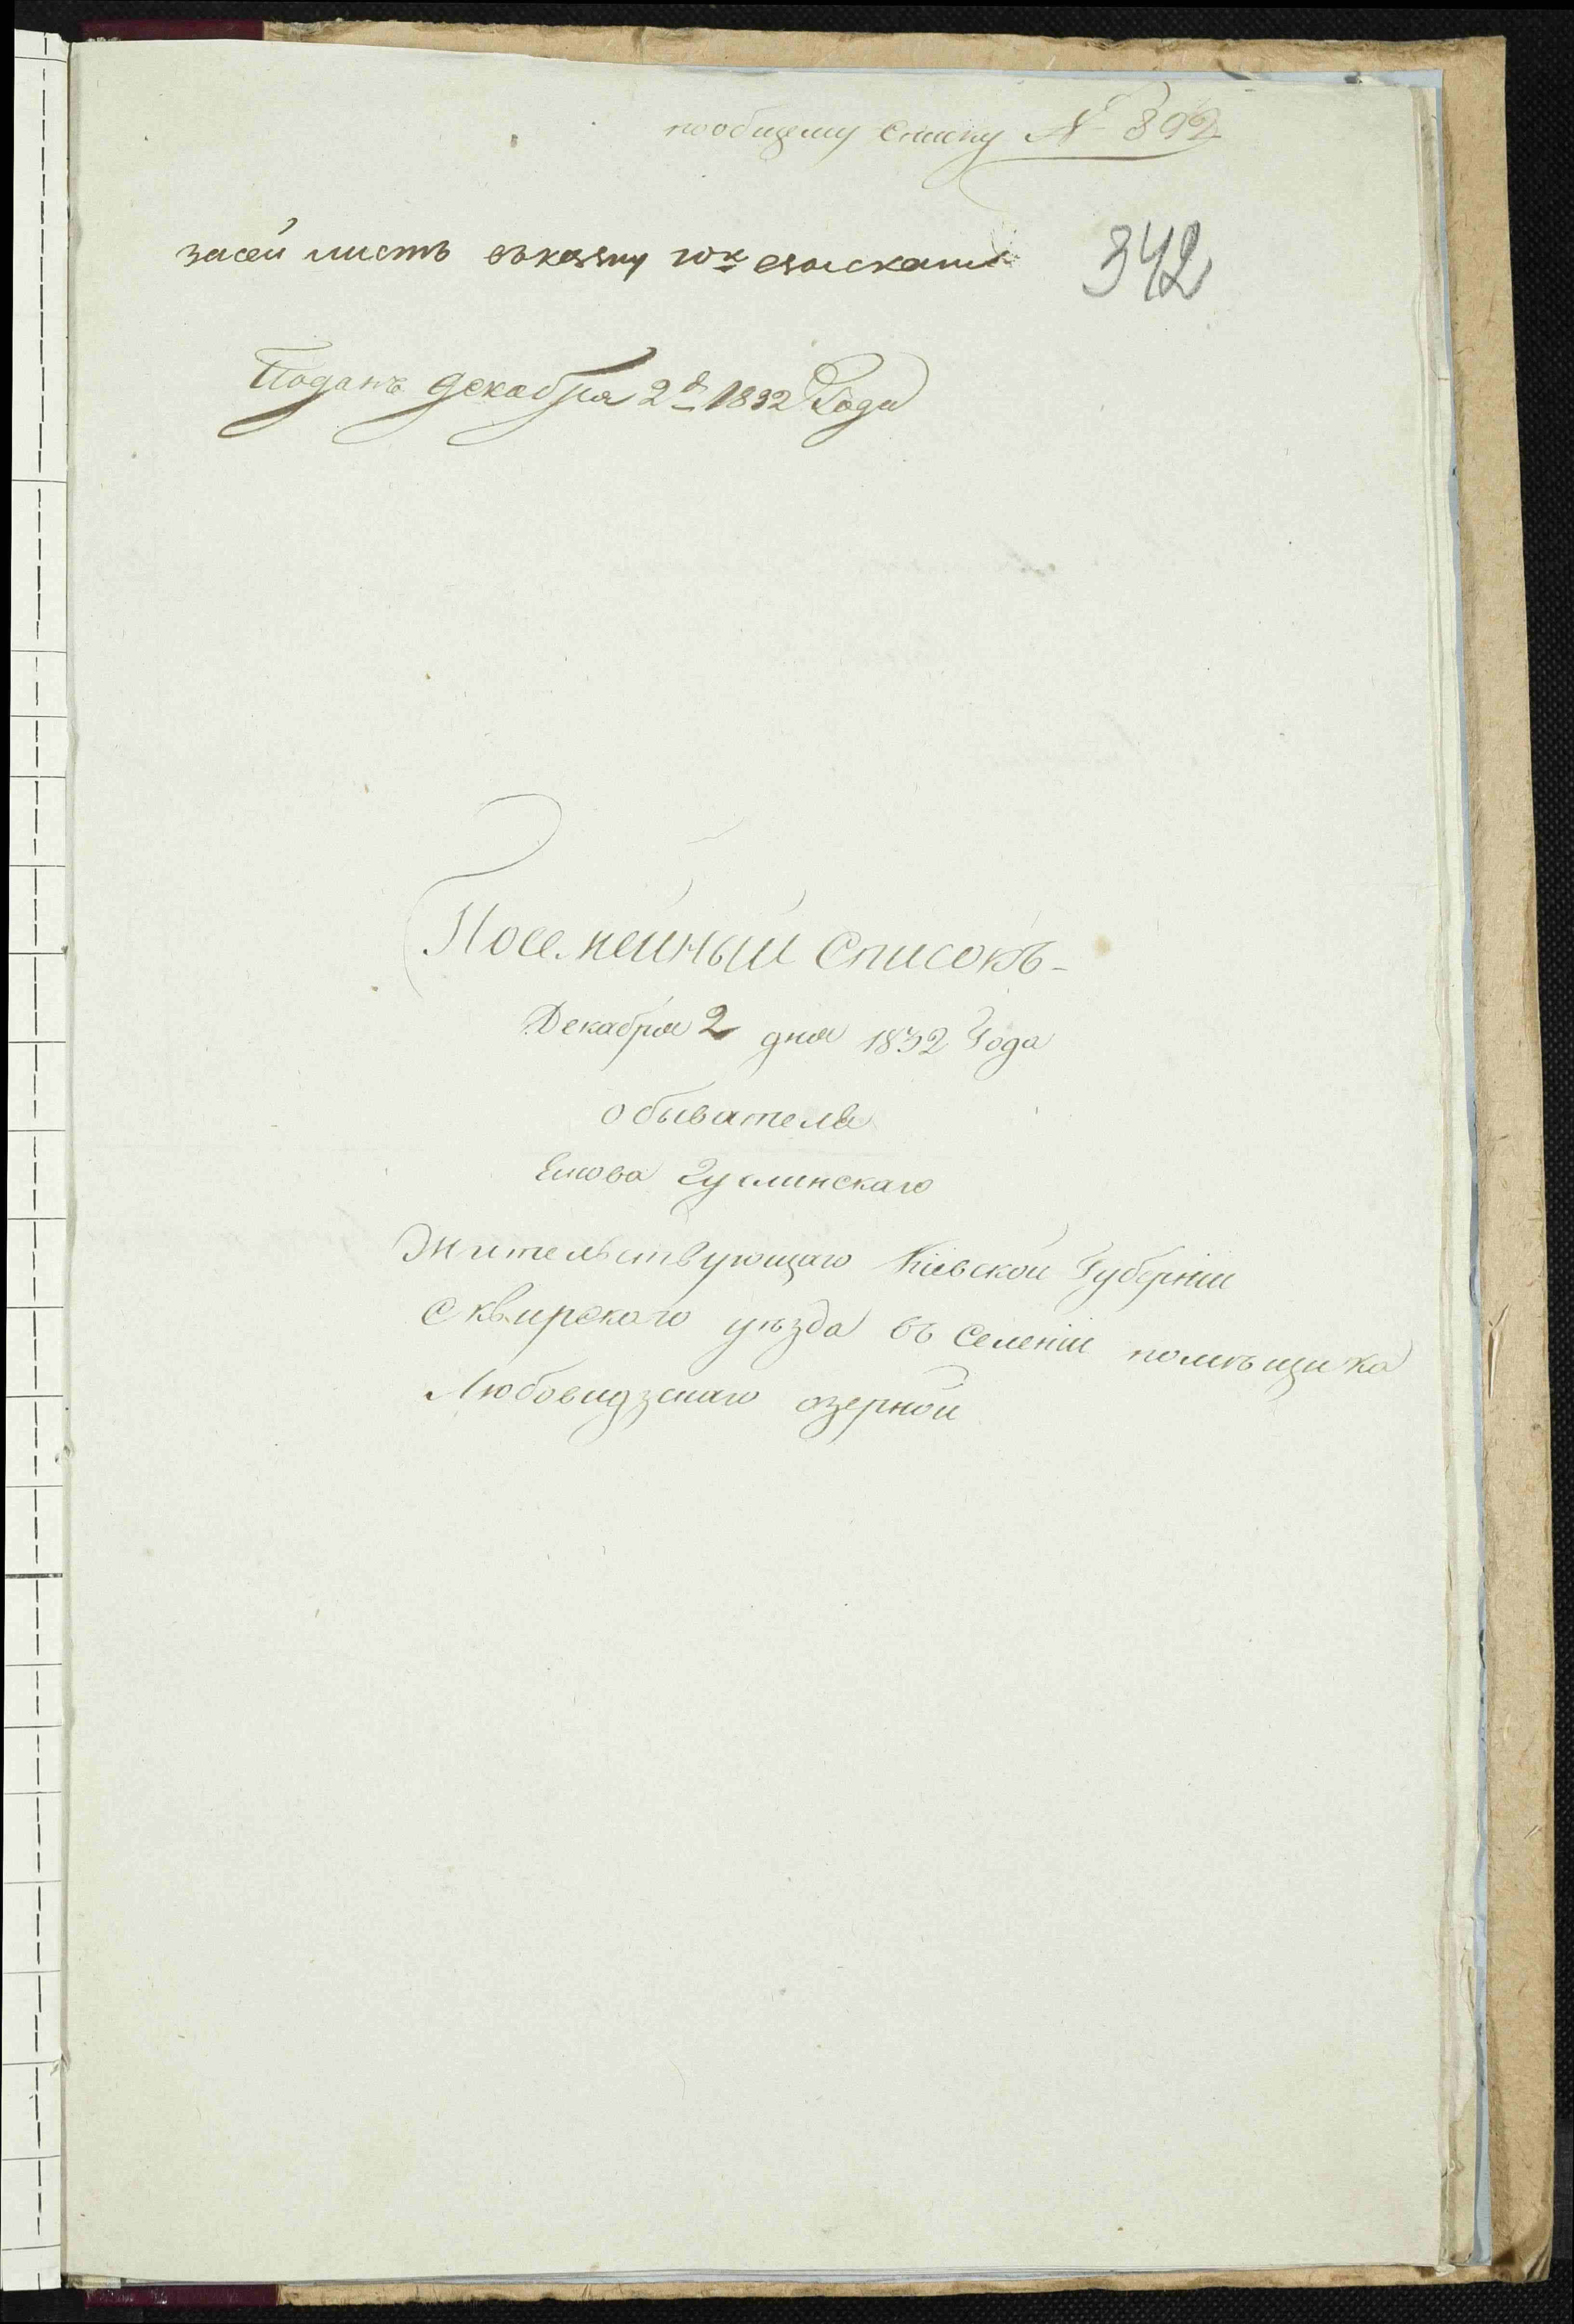 пообщему списку № 892
засей листъ въказну 10к взыскать
342
Поданъ декабря 2д 1832 Года
Посемейный Списокъ-
Декабря 2 дня 1832 Года
обывателя
Гуслинскаго
Жительствующаго Кіевской Губерніи
Сквирского уѣзда въ Селеніи помѣщика
Любовидзскаго озерной